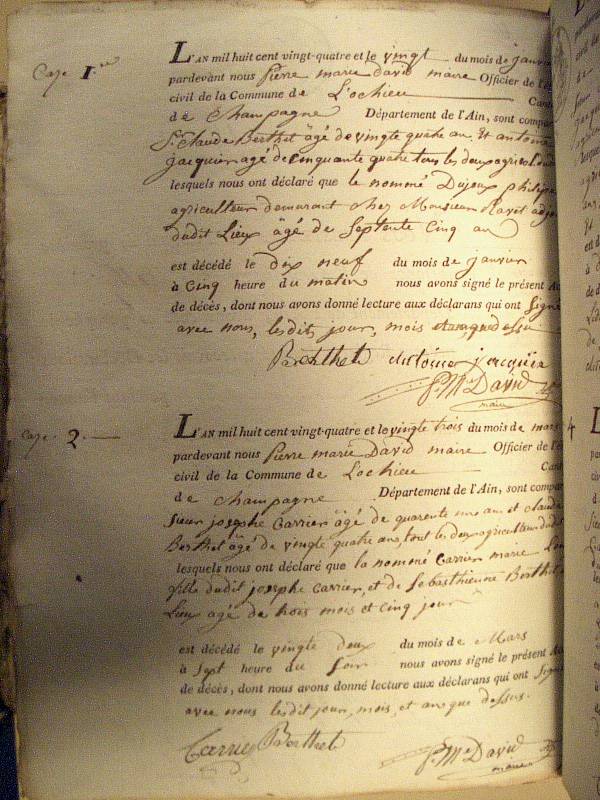 Case 1.re
L'AN mil huit cent vingt-quatre et le vingt du mois de janvier
pardevant nous Pierre marie david maire Officier de l'é
civil de la Commune de Lochieu Can
de Champagne Département de l'Ain, sont compa
S.r Claude Berthet âgé de vingte quatre an, Et antoine
jacquier agé de cinquante quatre tous les deux agricul
lesquels nous ont déclaré que le nommé Dujoux philip
agriculteur demurant chez Monsieur Ravet adj
dudit Lieux âgé de septente cinq an
est décédé le dix neuf du mois de janvier
à cinq heure du matin nous avons signé le présent Ac
de décès, dont nous avons donné lecture aux déclarans qui ont signé
avec nous, lesdits jour, mois et an que dessu
Berthet antoine jacquier
P. M. David
maire
Case 2.
L'AN mil huit cent vingt-quatre et le vingte trois du mois de mars
pardevant nous Pierre marie David maire Officier de l'é
civil de la Commune de Lochieu Can
de Champagne Département de l'Ain, sont compa
sieur josephe Carrier âgé de quarente un ans et claude
Berthet âgé de vingte quatre ans, tout les deux agriculteur dudit
lesquels nous ont déclaré que la nommé Carrier marie
fille dudit josephe Carrier, et de Sebasthienne Berthet
Lieux agé de trois mois et cinq jour
est décédé le vingte deux du mois de Mars
à sept heure du soir nous avons signé le présent Ac
de décès, dont nous avons donné lecture aux déclarans qui ont signé
avec nous lesdit jour, mois, et an que dessus.
Carrier Berthet
P. M. David
maire